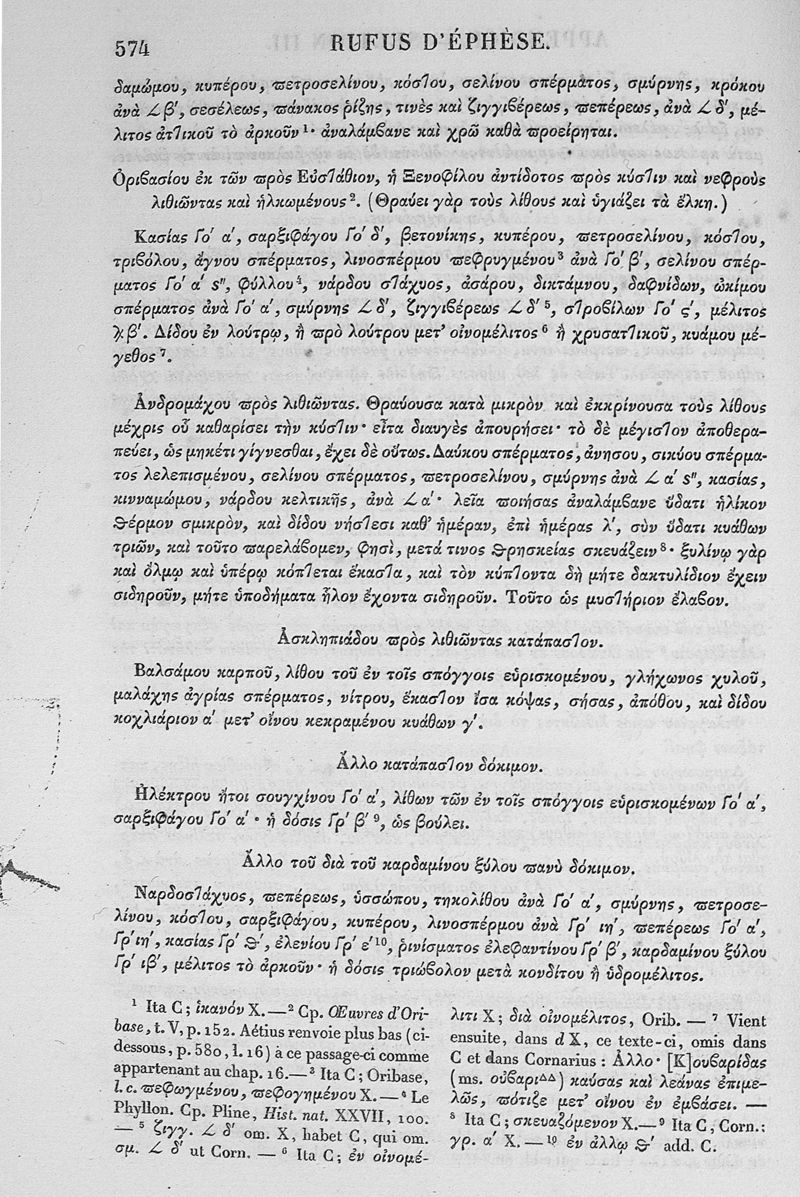 574 RUFUS D'ÉPHÈSE.
δαμώμου, κυπέρου, πετροσελίνου, κόστου, σελίνου σπέρματος, σμύρνης, κρόκου
ἀνὰ ∠ β', σεσέλεως, πάνακος ῥίζης, τινὲς καὶ ζιγγιβέρεως, πεπέρεως, ἀνὰ ∠ δ', μέ-
λιτος ἀτ1ικοῦ τὸ ἀρκοῦν¹· ἀναλάμβανε καὶ χρῶ καθὰ προείρηται.
Ὀριβασίου ἐκ τῶν πρὸς Εὐστάθιον, ἡ Ξενοφίλου ἀντίδοτος πρὸς κύστιν καὶ νεφροὺς
λιθιῶντας καὶ ἡλκωμένους². (Θραύει γὰρ τοὺς λίθους καὶ ὑγιάζει τὰ ἕλκη.)
Κασίας Γο' α', σαρξιφάγου Γο' δ', βετονίκης, κυπέρου, πετροσελίνου, κόστου,
τριβόλου, ἄγνου σπέρματος, λινοσπέρμου πεφρυγμένου³ ἀνὰ Γο' β', σελίνου σπέρ-
ματος Γο' α' s", φύλλου⁴, νάρδου στάχυος, ἀσάρου, δικτάμνου, δαφνίδων, ὠκίμου
σπέρματος ἀνὰ Γο' α', σμύρνης ∠ δ', ζιγγιβέρεως ∠ δ'⁵, στροβίλων Γο' ς', μέλιτος
λ. β'. Δίδου ἐν λούτρῳ, ἢ πρὸ λούτρου μετ' οἰνομέλιτος⁶ ἢ χρυσαττικοῦ, κυάμου μέ-
γεθος⁷.
Ἀνδρομάχου πρὸς λιθιῶντας. Θραύουσα κατὰ μικρὸν καὶ ἐκκρίνουσα τοὺς λίθους
μέχρις οὗ καθαρίσει τὴν κύστιν· εἶτα διαυγὲς ἀπουρήσει· τὸ δὲ μέγιστον ἀποθερα-
πεύει, ὡς μηκέτι γίγνεσθαι, ἔχει δὲ οὕτως. Δαύκου σπέρματος, ἀνήσου, σικύου σπέρμα-
τος λελεπισμένου, σελίνου σπέρματος, πετροσελίνου, σμύρνης ἀνὰ ∠ α' s", κασίας,
κινναμώμου, νάρδου κελτικῆς, ἀνὰ ∠ α'· λεῖα ποιήσας ἀναλάμβανε ὕδατι ἡλίκον
θέρμον σμικρὸν, καὶ δίδου νήστεσι καθ' ἡμέραν, ἐπὶ ἡμέρας λ', σὺν ὕδατι κυάθων
τριῶν, καὶ τοῦτο παρελάβομεν, φησὶ, μετά τινος θρησκείας σκευάζειν⁸· ξυλίνῳ γὰρ
καὶ ὅλμῳ καὶ ὑπέρῳ κόπτεται ἕκαστα, καὶ τὸν κόπτοντα δὴ μήτε δακτυλίδιον ἔχειν
σιδηροῦν, μήτε ὑποδήματα ἧλον ἔχοντα σιδηροῦν. Τοῦτο ὡς μυστήριον ἔλαβον.
Ἀσκληπιάδου πρὸς λιθιῶντας κατάπαστον.
Βαλσάμου καρποῦ, λίθου τοῦ ἐν τοῖς σπόγγοις εὑρισκομένου, γλήχωνος χυλοῦ,
μαλάχης ἀγρίας σπέρματος, νίτρου, ἕκαστον ἴσα κόψας, σήσας, ἀπόθου, καὶ δίδου
κοχλιάριον α' μετ' οἴνου κεκραμένου κυάθων γ'.
Ἄλλο κατάπαστον δόκιμον.
Ἠλέκτρου ἤτοι σουγχίνου Γο' α', λίθων τῶν ἐν τοῖς σπόγγοις εὑρισκομένων Γο' α',
σαρξιφάγου Γο' α'· ἡ δόσις Γρ' β'⁹, ὡς βούλει.
Ἄλλο τοῦ διὰ τοῦ καρδαμίνου ξύλου πανὺ δόκιμον.
Ναρδοστάχυος, πεπέρεως, ὑσσώπου, τηκολίθου ἀνὰ Γο' α', σμύρνης, πετροσε-
λίνου, κόστου, σαρξιφάγου, κυπέρου, λινοσπέρμου ἀνὰ Γρ' ιη', πεπέρεως Γο' α',
Γρ' ιη', κασίας Γρ' θ', ἑλενίου Γρ' ε'¹⁰, ῥινίσματος ἐλεφαντίνου Γρ' β', καρδαμίνου ξύλου
Γρ' ιβ', μέλιτος τὸ ἀρκοῦν· ἡ δόσις τριώβολον μετὰ κονδίτου ἢ ὑδρομέλιτος.
¹ Ita C; ἱκανόν X. — ² Cp. Œuvres d'Ori-
base, t. V, p. 152. Aétius renvoie plus bas (ci-
dessous, p. 580, l. 16) à ce passage-ci comme
appartenant au chap. 16. — ³ Ita C; Oribase,
l. c. πεφωγμένου, πεφογημένου X. — ⁴ Le
Phyllon. Cp. Pline, Hist. nat. XXVII, 100.
— ⁵ ζιγγ. ∠ δ' om. X, habet C, qui om.
σμ. ∠ δ' ut Corn. — ⁶ Ita C; ἐν οἰνομέ-
λιτι X; διὰ οἰνομέλιτος, Orib. — ⁷ Vient
ensuite, dans d X, ce texte-ci, omis dans
C et dans Cornarius : Ἄλλο· [Κ]ουβαρίδας
(ms. οὐβαρι^ΔΔ) καύσας καὶ λεάνας ἐπιμε-
λῶς, πότιζε μετ' οἴνου ἐν ἐμβάσει. —
⁸ Ita C; σκευαζόμενον X. — ⁹ Ita C, Corn.:
γρ. α' X. — ¹⁰ ἐν ἄλλῳ θ' add. C.